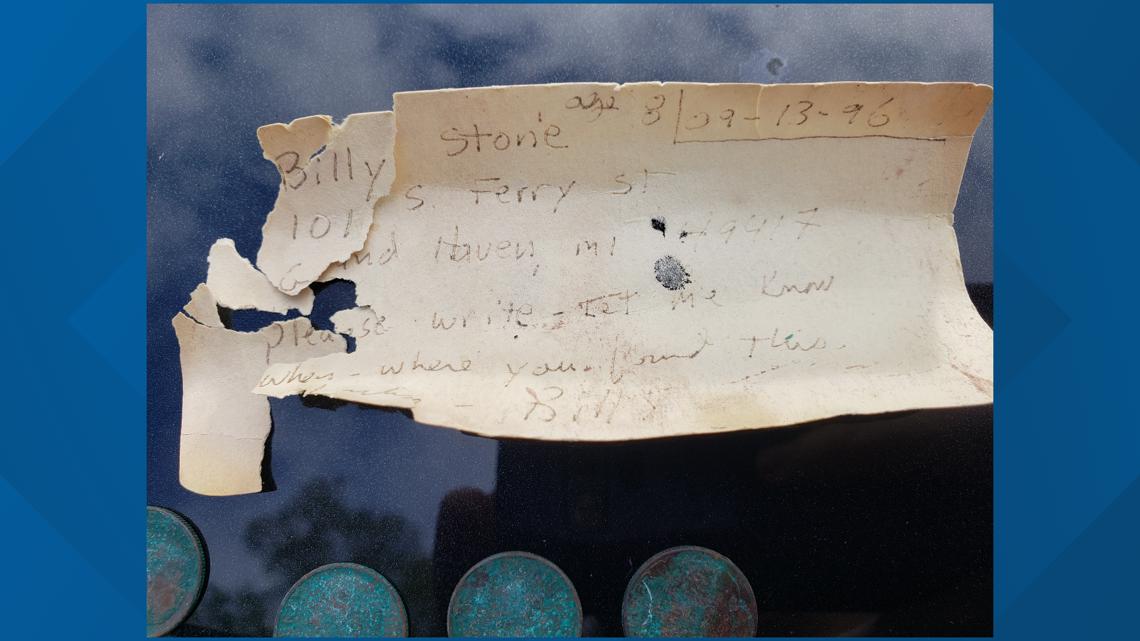 age 8 09-13-96
Billy Stone
101 S. Ferry St
Grand Haven, mi 49417
please write - Let me know
when - where you found this.
- Billy